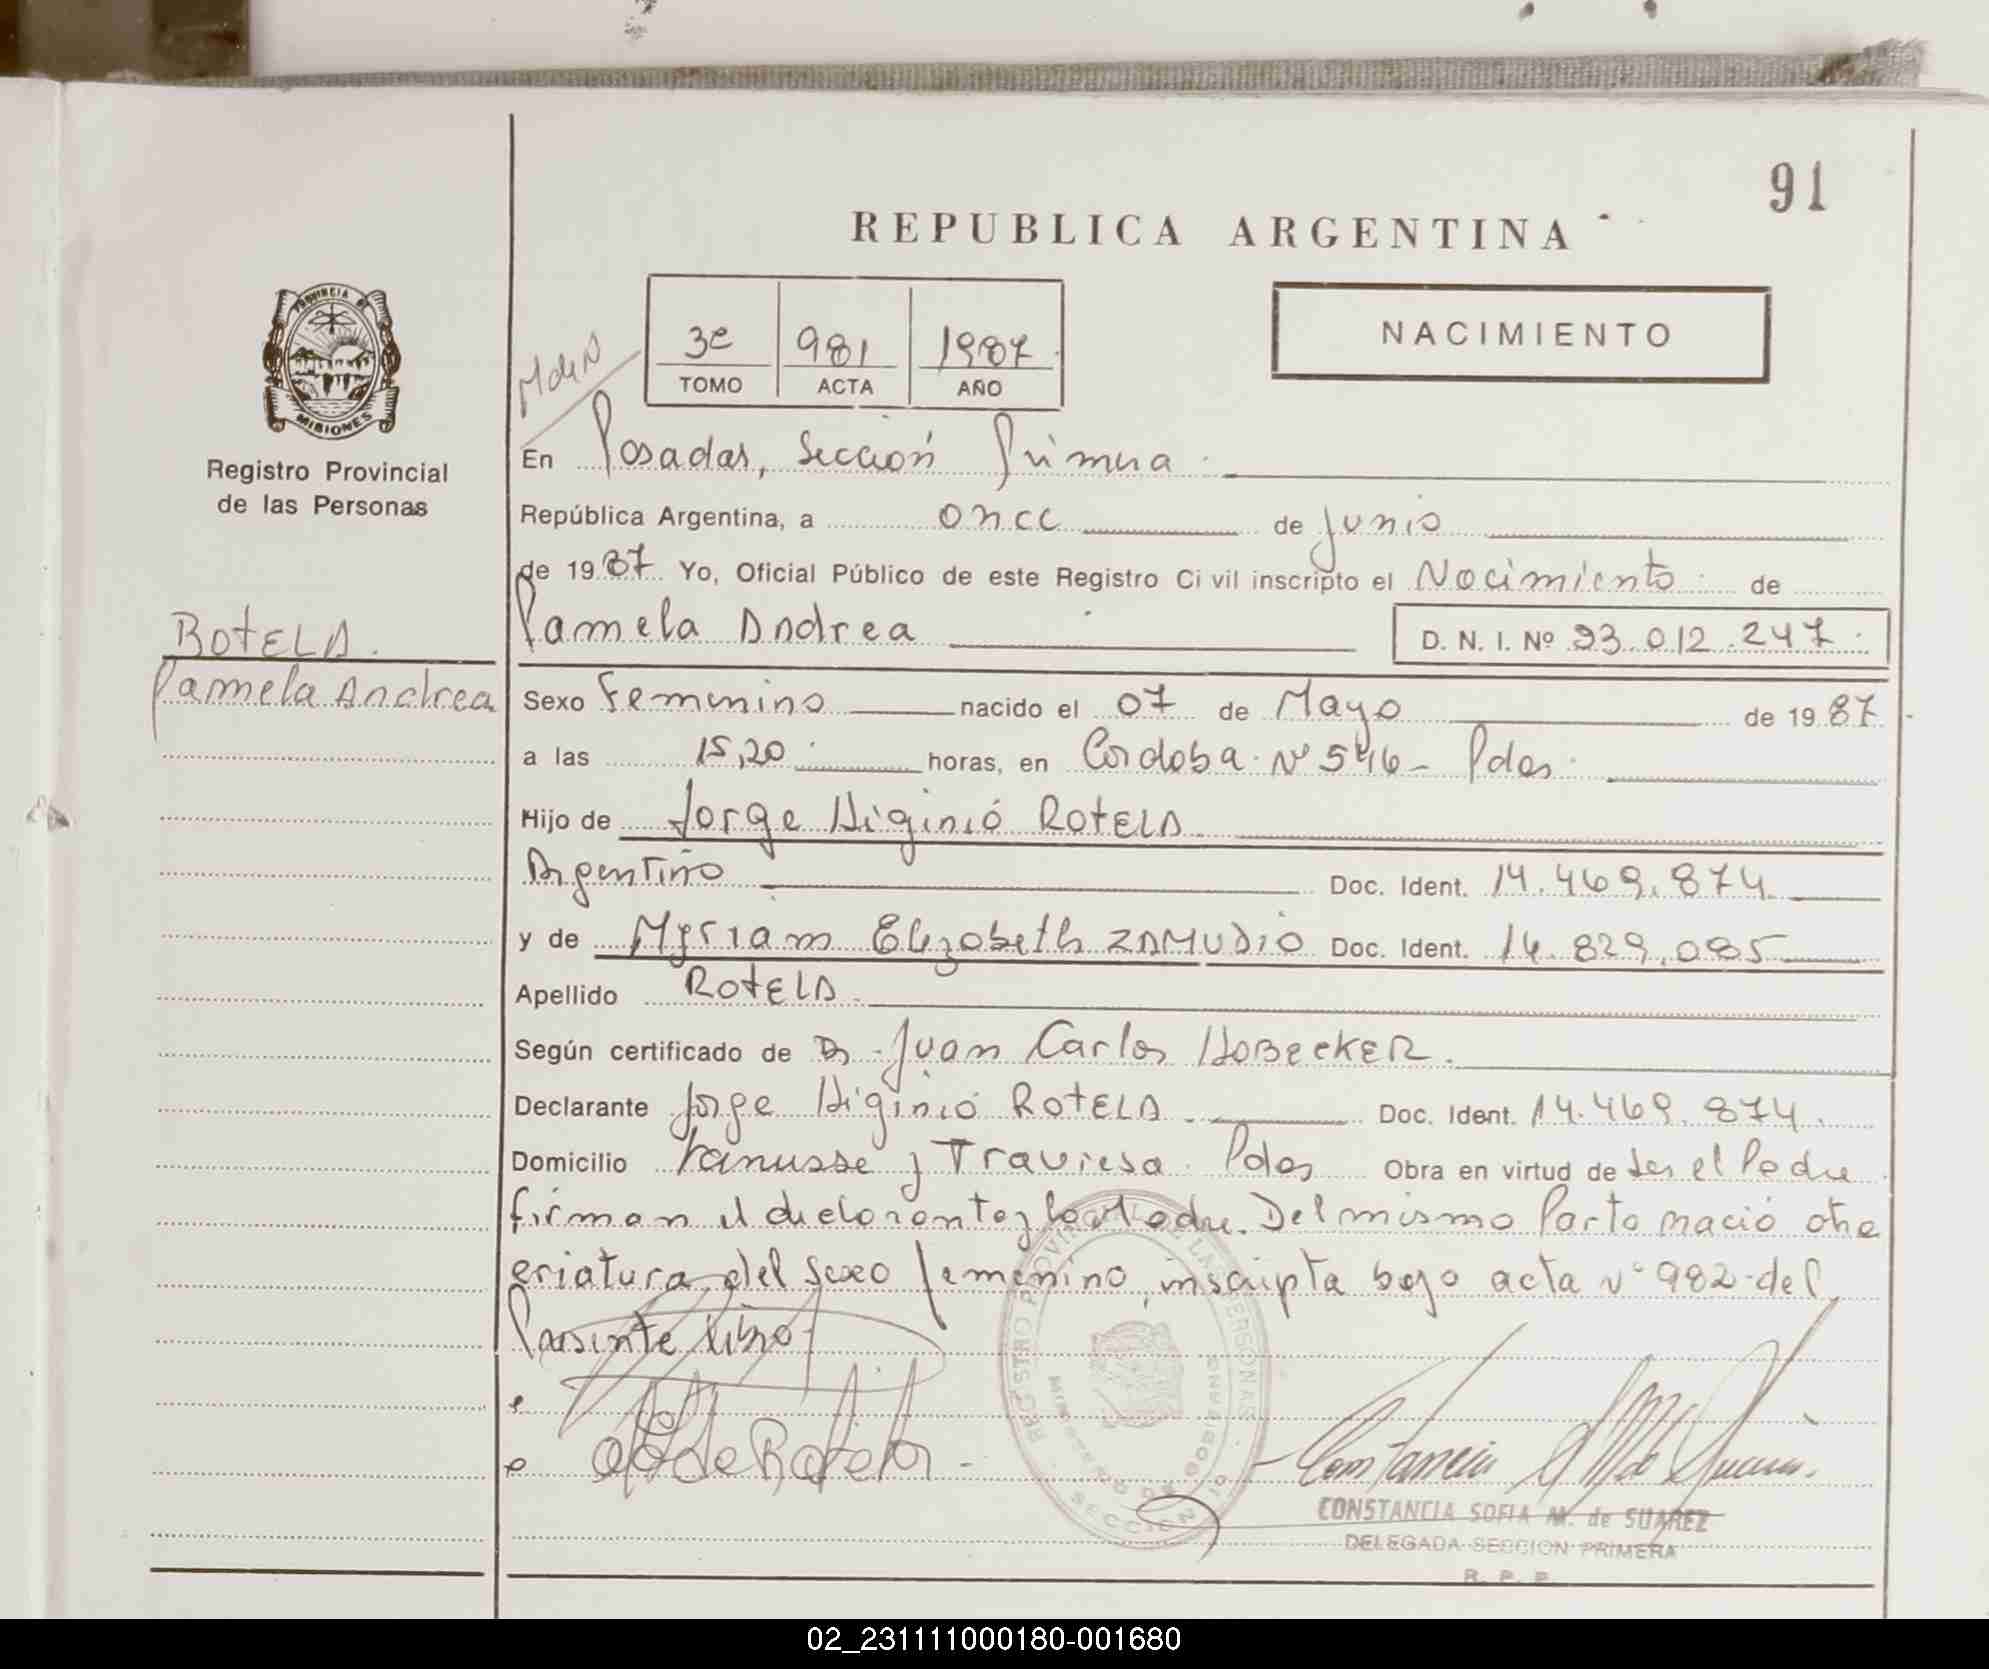 91
REPUBLICA ARGENTINA
NACIMIENTO
3e 981 1987
TOMO ACTA AÑO
PROVINCIA DE
MISIONES
Registro Provincial
de las Personas
ROTELA.
Pamela Andrea
En Posadas, Sección Primera
República Argentina, a once de Junio
de 1987 Yo, Oficial Público de este Registro Civil inscripto el Nacimiento de
Pamela Andrea D. N. I. Nº 93.012.247
Sexo Femenino nacido el 07 de Mayo de 1987
a las 15,20 horas, en Cordoba Nº 546 - Pdas.
Hijo de Jorge Higinió ROTELA
Argentino Doc. Ident. 14.469.874
y de Myriam Elizabeth ZAMUDIO Doc. Ident. 14.829.085
Apellido ROTELA
Según certificado de Dr. Juan Carlos HOBECKER.
Declarante Jorge Higinió ROTELA Doc. Ident. 14.469.874.
Domicilio y Traviesa Pdas Obra en virtud de ser el Padre
firman el declarante y la Madre. Del mismo Parto nació otra
criatura del sexo femenino, inscripta bajo acta Nº 982 del
Presente libro
de Rotela
REGISTRO PROVINCIAL DE LAS PERSONAS
MINISTERIO DE GOBIERNO
SECCION 1a
CONSTANCIA SOFIA M. de SUAREZ
DELEGADA SECCION PRIMERA
R. P. P.
02_231111000180-001680